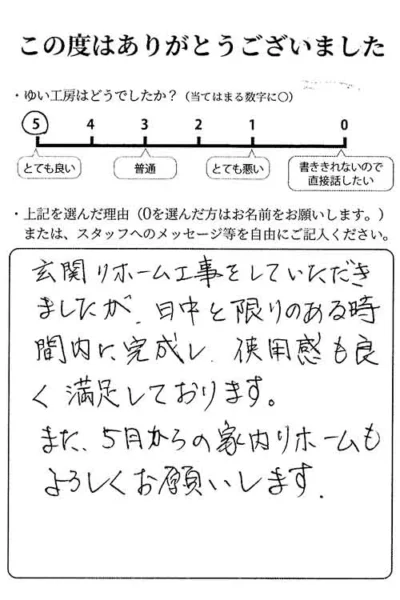 この度はありがとうございました
・ゆい工房はどうでしたか？（当てはまる数字に○）
5 4 3 2 1 0
とても良い 普通 とても悪い 書ききれないので
直接話したい
・上記を選んだ理由（0を選んだ方はお名前をお願いします。）
または、スタッフへのメッセージ等を自由にご記入ください。
玄関リホーム工事をしていただき
ましたが、日中と限りのある時
間内に完成し、使用感も良
く満足しております。
また、5月からの家内リホームも
よろしくお願いします.